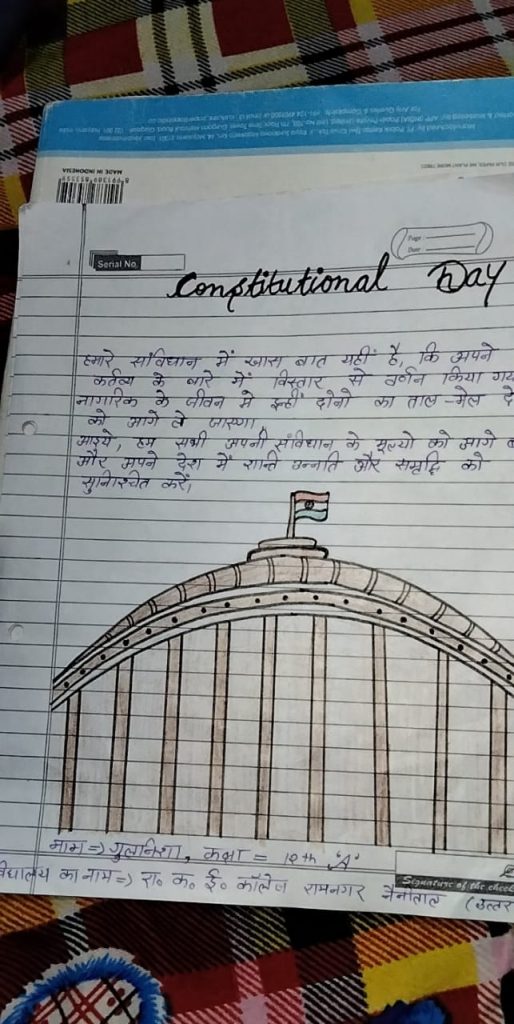 MADE IN INDONESIA
8 991389 853559
Page
Date
Serial No.
Constitutional Day
हमारे संविधान में खास बात यही है, कि अपने
कर्तव्य के बारे में विस्तार से वर्णन किया गय
नागरिक के जीवन मे इन्हीं दोनो का ताल-मेल दे
को आगे ले जाएगा,
आइये, हम सभी अपनी संविधान के मूल्यो को आगे ब
और अपने देश में शान्ति उन्नति और समृद्धि को
सुनिश्चित करें,
नाम => गुलनिशा, कक्षा = 12th 'A'
विद्यालय का नाम => रा० क० ई० कॉलेज रामनगर नैनीताल (उत्तर
Signature of the